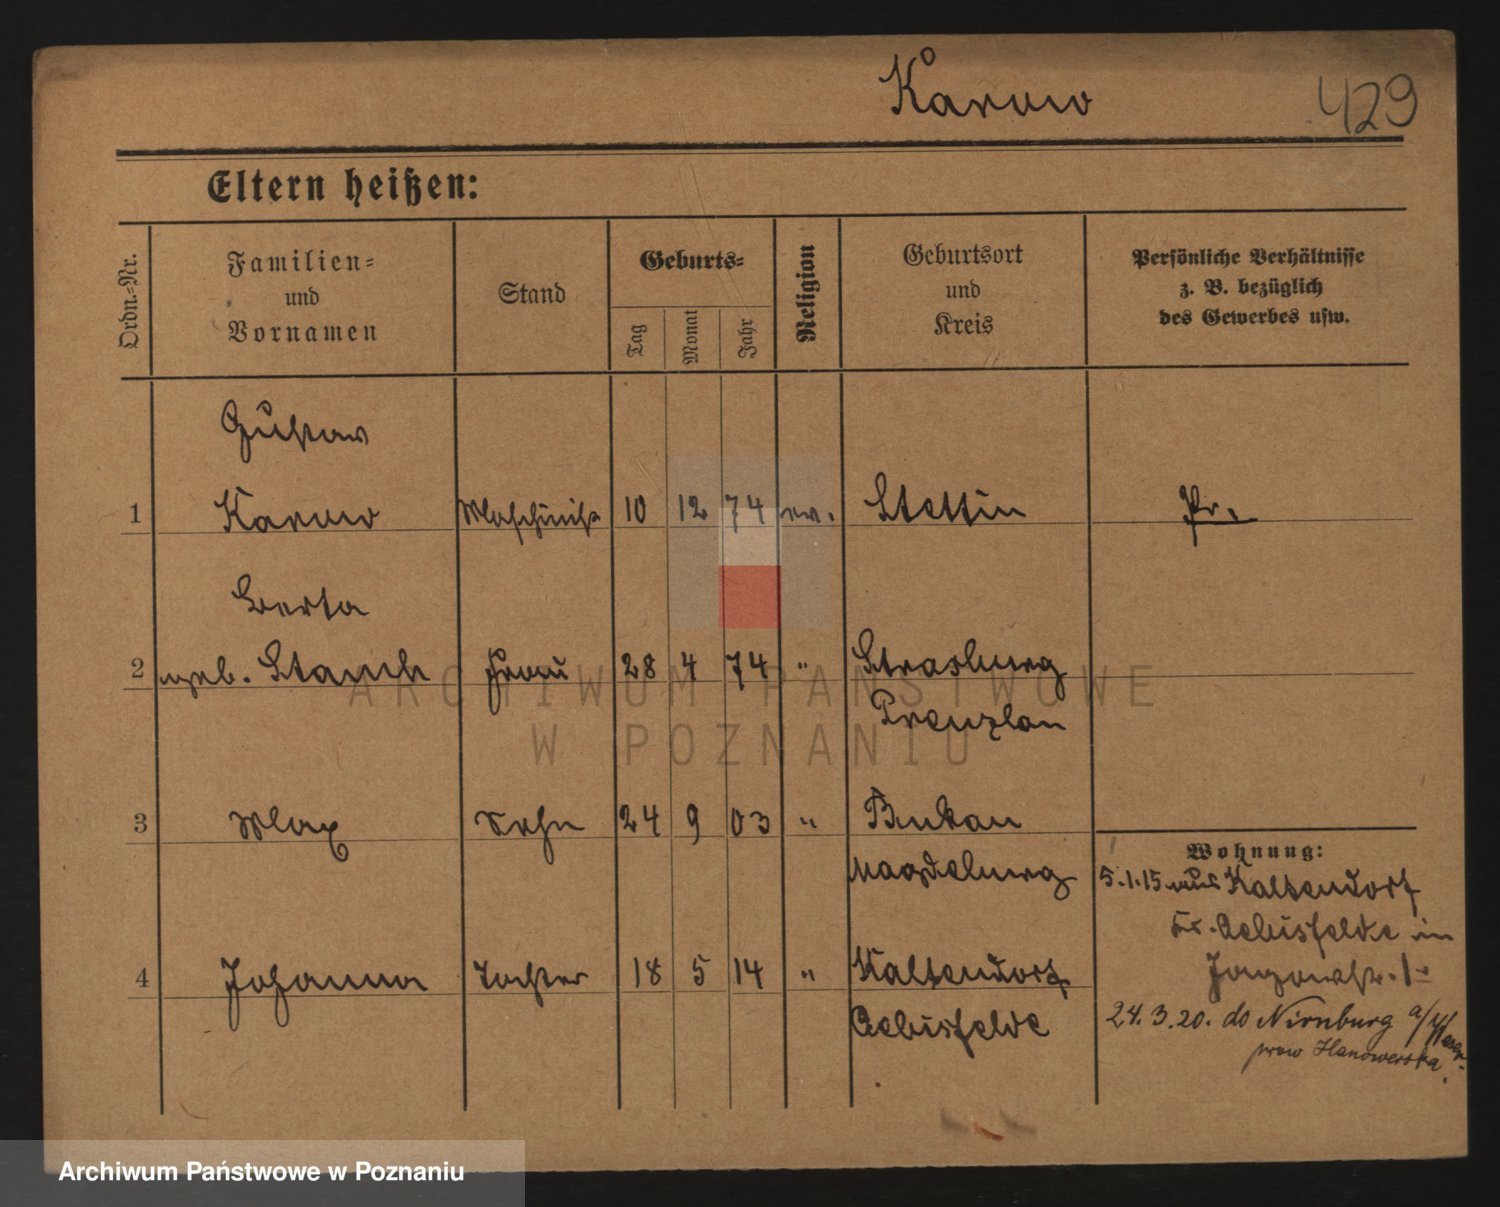 Karow
429
Eltern heißen:
Ordn.=Nr.
Familien=
und
Vornamen
Stand
Geburts=
Tag
Monat
Jahr
Religion
Geburtsort
und
Kreis
Persönliche Verhältnisse
z. B. bezüglich
des Gewerbes usw.
Gustav
1 Karow Maschinist 10 12 74 ev. Stettin Pr.
Berta
2 geb. Stanch Frau 28 4 74 " Strasburg
Prenzlau
3 Max Sohn 24 9 03 " Bukau
Magdeburg
Wohnung:
5.1.15 aus Kaltendorf
Kr. Oebisfelde in
4 Johanna Tochter 18 5 14 " Kaltendorf
Oebisfelde
24.3.20. do Nirnburg a/Weser
prow Hanowerska.
ARCHIWUM PAŃSTWOWE
W POZNANIU
Archiwum Państwowe w Poznaniu